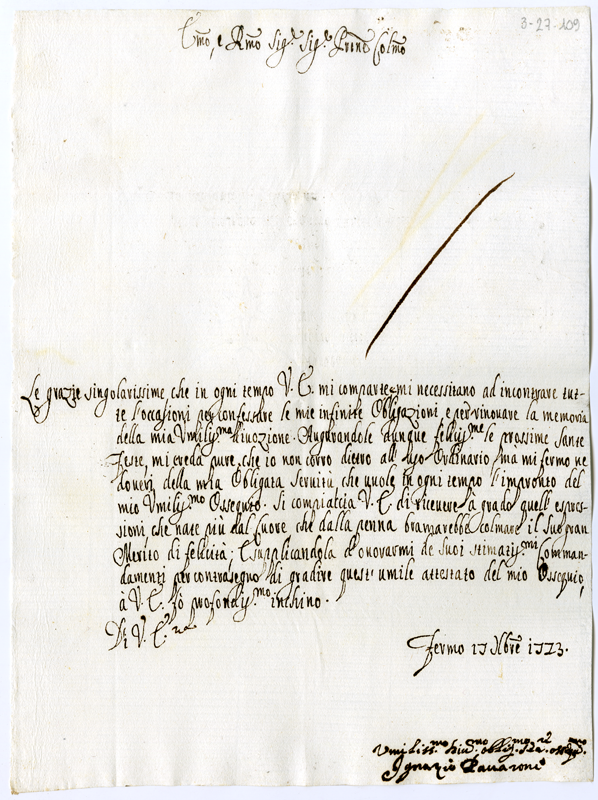 3-27-109
Emo, e Rmo Sig.r Sig.r Prone Colmo
Le grazie singolarissime, che in ogni tempo V. E. mi comparte, mi necessitano ad incontrare tut-
te l'occasioni per confessare le mie infinite Obligazioni e per rinovare la memoria
della mia Umiliss.ma divozione. Augurandole dunque feliciss.me le prossime Sante
Feste, mi creda pure, che io non corro dietro all'uso Ordinario mà mi fermo ne
doveri della mia Obligata Servitù che vuole in ogni tempo l'impronto del
mio Umiliss.mo Ossequio. Si compiaccia V. E. di ricevere à grado quell'espres-
sioni, che nate più dal Cuore che dalla penna bramarebbe colmare il Suo gran
Merito di felicità; E supplicandola d'onorarmi de Suoi stimatiss.mi Comman-
damenti per contrasegno di gradire quest'umile attestato del mio Ossequio,
à V. E. fò profondiss.mo inchino.
Di V. E.
Fermo 17 Xbre 1723.
Umiliss.mo Oblig.mo
Ignazio